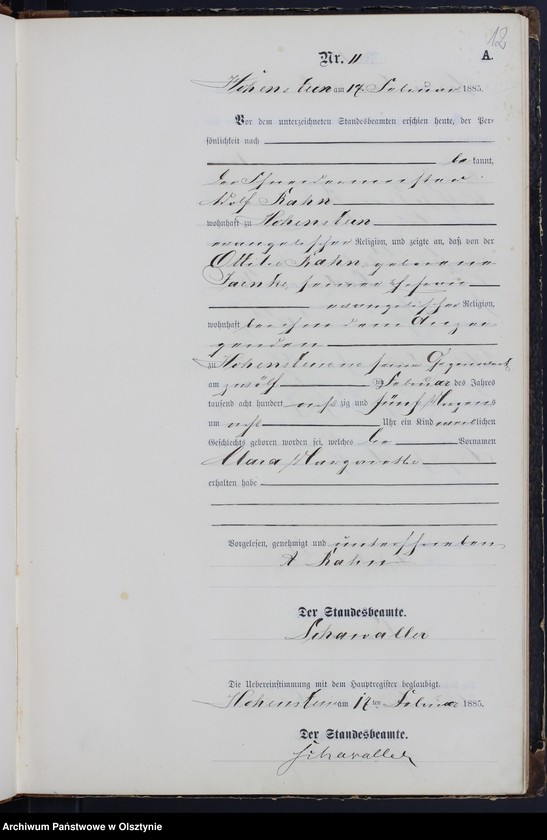 12
Nr. 11
A.
Hohenstein am 17 Februar 1885.
Vor dem unterzeichneten Standesbeamten erschien heute, der Per-
sönlichkeit nach
be kannt,
der Schneidermeister
Adolf Kahn
wohnhaft zu Hohenstein
evangelischer Religion, und zeigte an, daß von der
Ottilie Kahn geborene
seiner Ehefrau
evangelischer Religion,
wohnhaft bei ihm dem Anzei
genden
zu Hohenstein in seiner Gegenwart
am zwölf ten Februar des Jahres
tausend acht hundert acht zig und fünf Morgens
um acht Uhr ein Kind weiblichen
Geschlechts geboren worden sei, welches die Vornamen
Clara Margarethe
erhalten habe
Vorgelesen, genehmigt und unterschrieben
A Kahn
Der Standesbeamte.
Schawaller
Die Uebereinstimmung mit dem Hauptregister beglaubigt.
Hohenstein am 17 ten Februar 1885.
Der Standesbeamte.
Schawaller
Archiwum Państwowe w Olsztynie